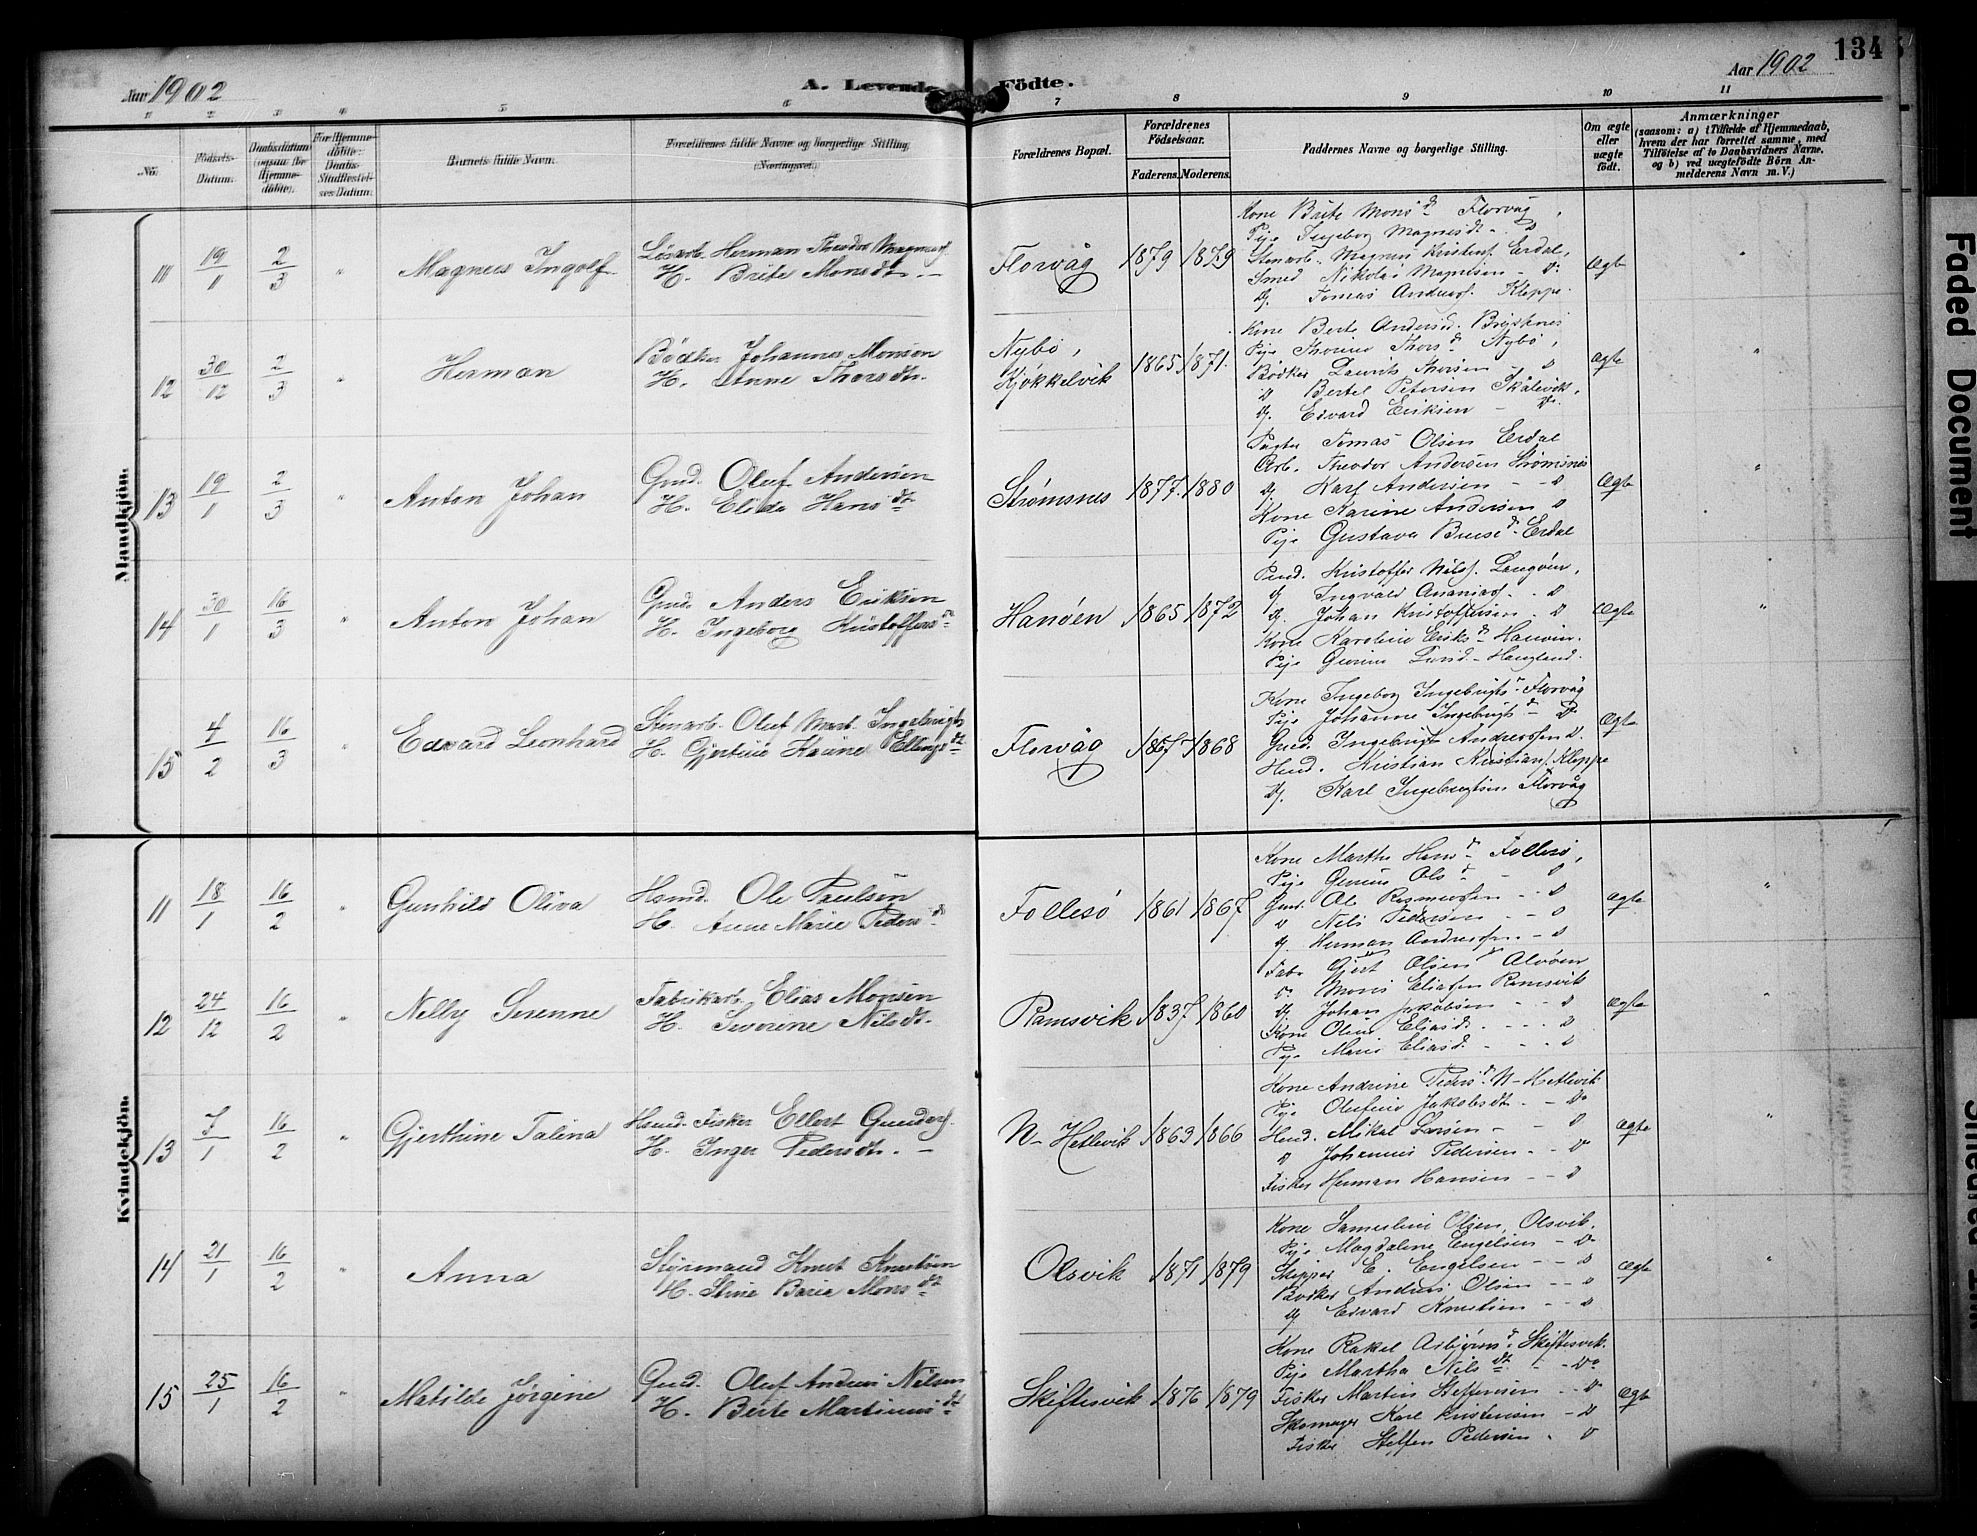 134
Aar 1902
A. Levende Födte.
Aar 1902
1 2 3 4 5 6 7 8 9 10 11
No.
Födsels-Datum.
Daabsdatum (ogsaa for Hjemmedöbte).
For Hjemmedöbte: Daabs-Stadfæstelses-Datum.
Barnets fulde Navn.
Forældrenes fulde Navne og borgerlige Stilling. (Næringsvei.)
Forældrenes Bopæl.
Forældrenes Födselsaar.
Faderens. Moderens.
Faddernes Navne og borgerlige Stilling.
Om ægte eller uægte födt.
Anmærkninger
(saasom: a) i Tilfælde af Hjemmedaab,
hvem der har forrettet samme, med
Tilföielse af to Daabsvidners Navne,
og b) ved uægtefödte Börn Anmelderens Navn m. V.)
Mandkjön.
11 19/1 2/3 " Magnus Ingolf
Løsarb. Herman Theodor Magnusf.
H. Brite Monsdt. -
Florvåg 1879 1879
Kone Brite Monsd. Florvåg,
Pige Ingeborg Magnesdt. - D
Stenarb. Magnus Kristens. Erdal,
Smed Nikolai Magnesen - D
Dj. Tomas Anders. Kleppe.
Ægte "
12 30/12 2/3 " Herman
Bödker Johannes Monsen
H. Anne Thorsdtr.
Nybö, Kjøkkelvik 1865 1871.
Kone Berte Andersd.
Pige Thorine Thorsd. Nybö,
Bödker Laurits Thorsen - D
D Bertel Petersen Skålevik,
Dj. Edvard Eriksen - D
Ægte "
13 19/1 2/3 " Anton Johan
Gmd. Oluf Andersen
H. Elida Hansdt
Strømsnes 1877. 1880
Tomas Olsen Erdal
Arb. Theodor Andersen Strømsnes
Dj Karl Andersen - - D
Kone Karine Andersen D
Pige Gustava Erdal
Ægte "
14 30/1 16/3 " Anton Johan
Gmd. Anders Eriksen
H. Ingeborg Kristoffersd
Hanøen 1865 1872
Kristoffer Nilsf.
Dj Ingvald - D
Dj. Johan Kristoffersen - D
Kone Karoline Eriksd Hanøen.
Pige Haugland.
Ægte "
15 4/2 16/3 " Edvard Leonhard
Stenarb. Oluf Mart. Ingebrigts
H. Gjertine Karine Ellingsdt
Florvåg 1867 1868
Kone Ingeborg Ingebrigts Florvåg
Pige Johanne Ingebrigtsd - D
Gmd. Ingebrigt Andersen D.
Kristian Kristians. Kleppe
Dj. Karl Ingebrigtsen Florvåg
Ægte
Kvindekjön.
11 18/1 16/2 " Gunhild Oliva
Hsmd. Ole Paulsen
H. Anne Marie Pedersd
Follesö 1861 1867
Kone Martha Hansd Follesö,
Pige Olsd - D
Gmd. Ole Rasmussen - D
D Nils Pedersen - - D
Dj. Herman - D
Ægte "
12 24/12 16/2 " Nelly Serenne
Fabrikarb. Elias Monsen
H. Severine Nilsdt.
Ramsvik 1837 1860
Fabr Gjert Olsen Alvøen
D Mons Eliasen Ramsvik
Dj. Johan Jakobsen - - D
Kone Oline Eliasd. - - - D
Pige Marie Eliasd. - - - D
Ægte "
13 7/1 16/2 " Gjerthine Talina
Hsmd. Fisker Ellert Gunders.
H. Inger Pedersdt. -
N- Hetlevik 1863 1866
Kone Andrine Pedersd. N-Hetlevik
Pige Olufine Jakobsdt. - D
Hsmd. Mikal Larsen - - D
D Johannes Pedersen. - - D
Fisker Herman Hansen - - D
Ægte "
14 21/1 16/2 " Anna
Styrmand Knut Knutsen
H. Stine Baria Monsdt
Olsvik 1871 1879
Kone Olsen, Olsvik.
Pige Magdalene Engelsen - D
Skipper E. Engelsen - - D
Bødker Andreas Olsen - - D
Dj Edvard Knutsen - - D
Ægte "
15 25/1 16/2 " Matilde Jørgine
Gmd. Oluf Andreas Nilsen
H. Berte Martinusdt
Skiftesvik 1876 1879
Kone Rakel Asbjørnsd. Skiftesvik.
Pige Martha Nilsdt. - D
Fisker Martin Steffensen - - D
Skomager Karl Kristensen - D
Fisker Steffen Pedersen - D
Ægte "
Faded Document
Smeared Ink